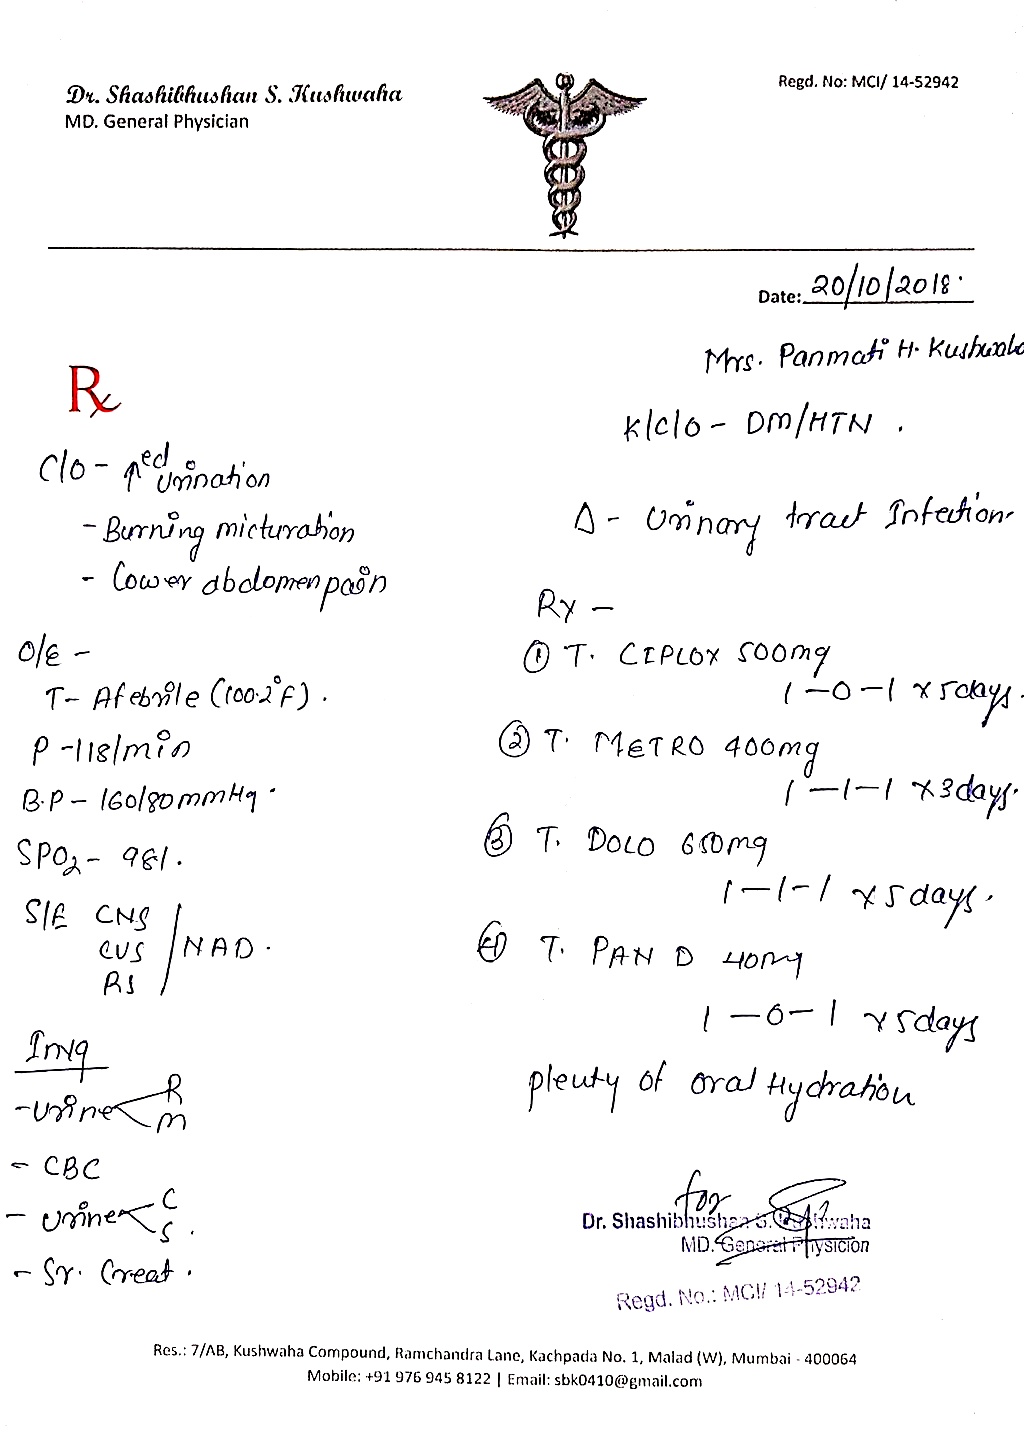 Dr. Shashibhushan S. Kushwaha
MD. General Physician
Regd. No: MCI/ 14-52942
Date: 20/10/2018.
Mrs. Panmati H. Kushwaha
Rx
K/C/O - DM/HTN.
C/O - ↑ed Urination
- Burning micturation
- Lower abdomen pain
O/E -
T- Afebrile (100.2°F).
P - 118/min
B.P - 160/80mmHg.
SPO2 - 98%.
S/E CNS
CVS / NAD.
RS
Invg
- Urine R
M
- CBC
- Urine C
S.
- Sr. Creat.
Δ - Urinary tract Infection.
Rx -
① T. CIPLOX 500mg
1-0-1 x 5days.
② T. METRO 400mg
1-1-1 x 3days.
③ T. DOLO 650mg
1-1-1 x 5days.
④ T. PAN D 40mg
1-0-1 x 5days
plenty of oral Hydration
for
Dr. Shashibhushan S. Kushwaha
MD. General Physicion
Regd. No.: MCI/ 14-52942
Res.: 7/AB, Kushwaha Compound, Ramchandra Lane, Kachpada No. 1, Malad (W), Mumbai - 400064
Mobile: +91 976 945 8122 | Email: sbk0410@gmail.com